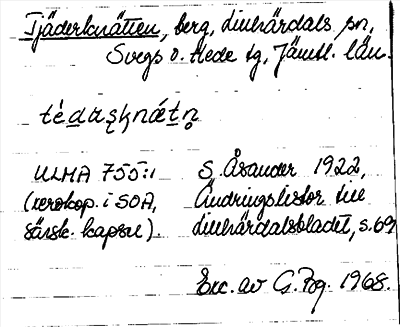 Tjäderknätten, berg, Linhärdals sn,
Svegs o. Hede tg, Jämtl. län.
ULMA 755:1 S. Åsander 1922,
(xerokop. i SOA, Ändringslistor till
särsk. kapsel). Linhärdalsbladet, s. 69
Exc. av G. Pg. 1968.